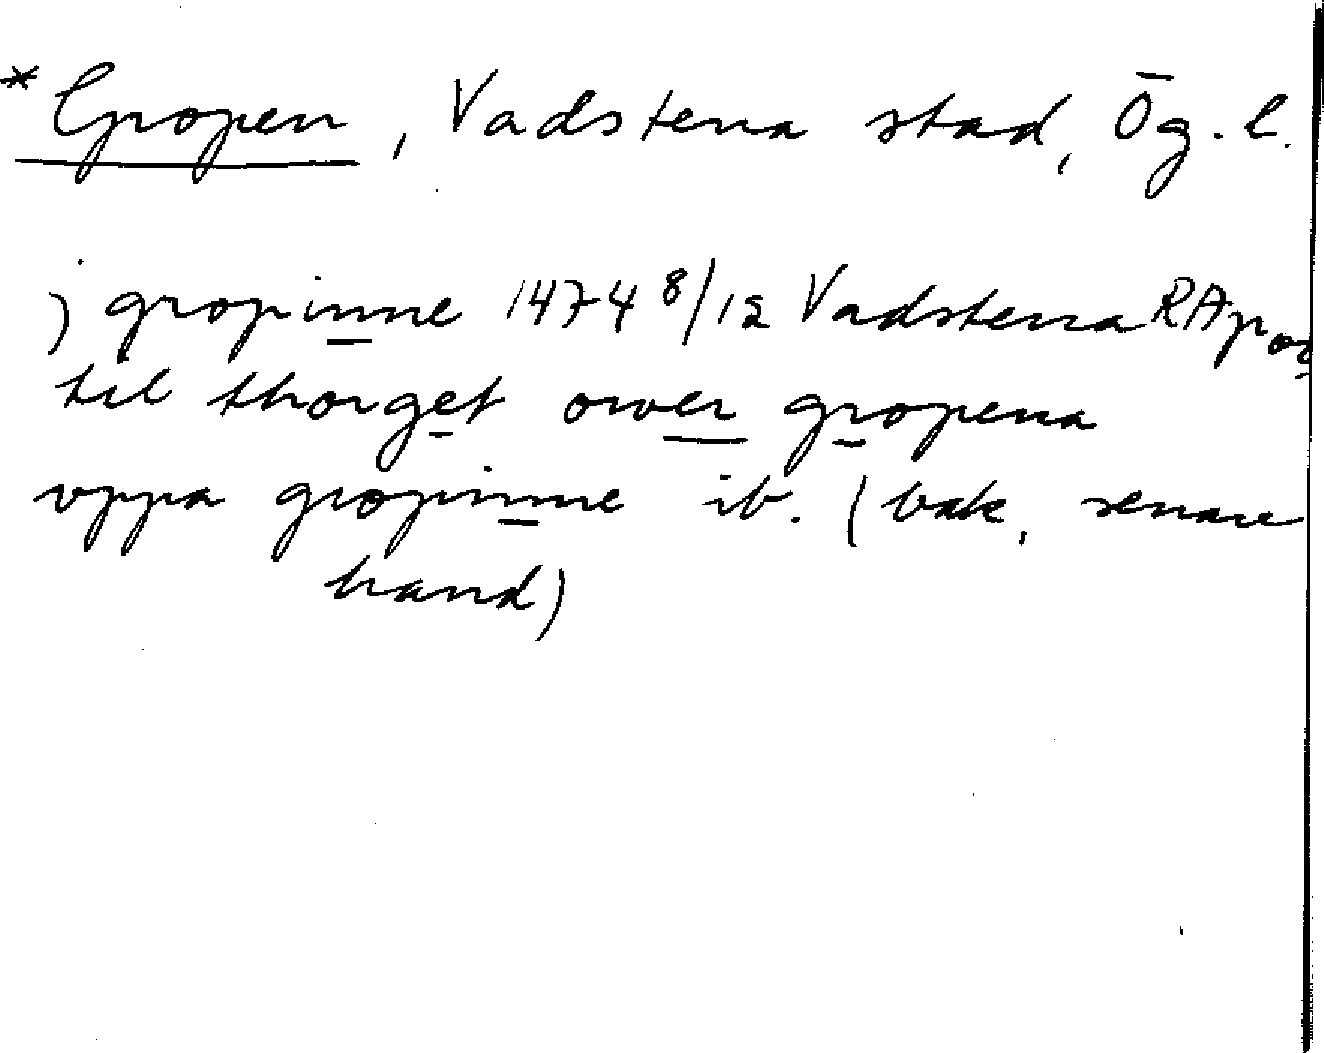 * Gropen, Vadstena stad, Ög. l.
j gropinne 1474 8/12 Vadstena RAp or
til thorget ower gropena
vppa gropinne ib. (bak, senare
hand)